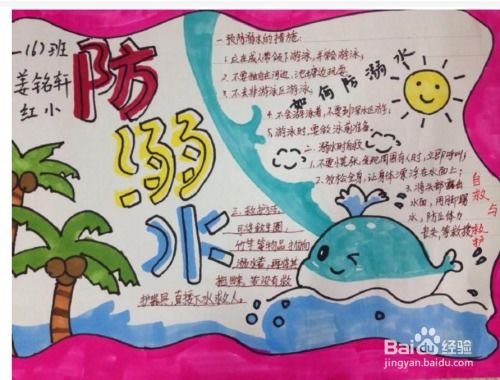 一(6)班
姜铭轩
红小
防
溺
水
如何防溺水
一、预防溺水的措施:
1.应在成人带领下游泳,并学会游泳;
2.不要独自在河边、
3.不去非游泳区游泳;
4.不会游泳者,不要到深水区游;
5.游泳时,要做
准备。
二、溺水时自救
1.不要慌张,发现周围有人时,立即呼叫;
2.放松全身,让身体漂浮在水面上;
3.将头部
水面,用脚踢
水,防止体力
丧失,等救援
自救与救护
三、救护
可将救生圈、
竹竿等物品
溺水者,再将其
拖
若没有救
护器具,直接下水救人。
Baidu经验
jingyan.baidu.com